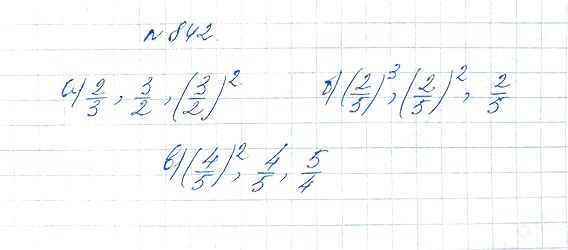 № 842.
а) 2/3, 3/2, (3/2)² б) (2/5)³, (2/5)², 2/5
в) (4/5)², 4/5, 5/4